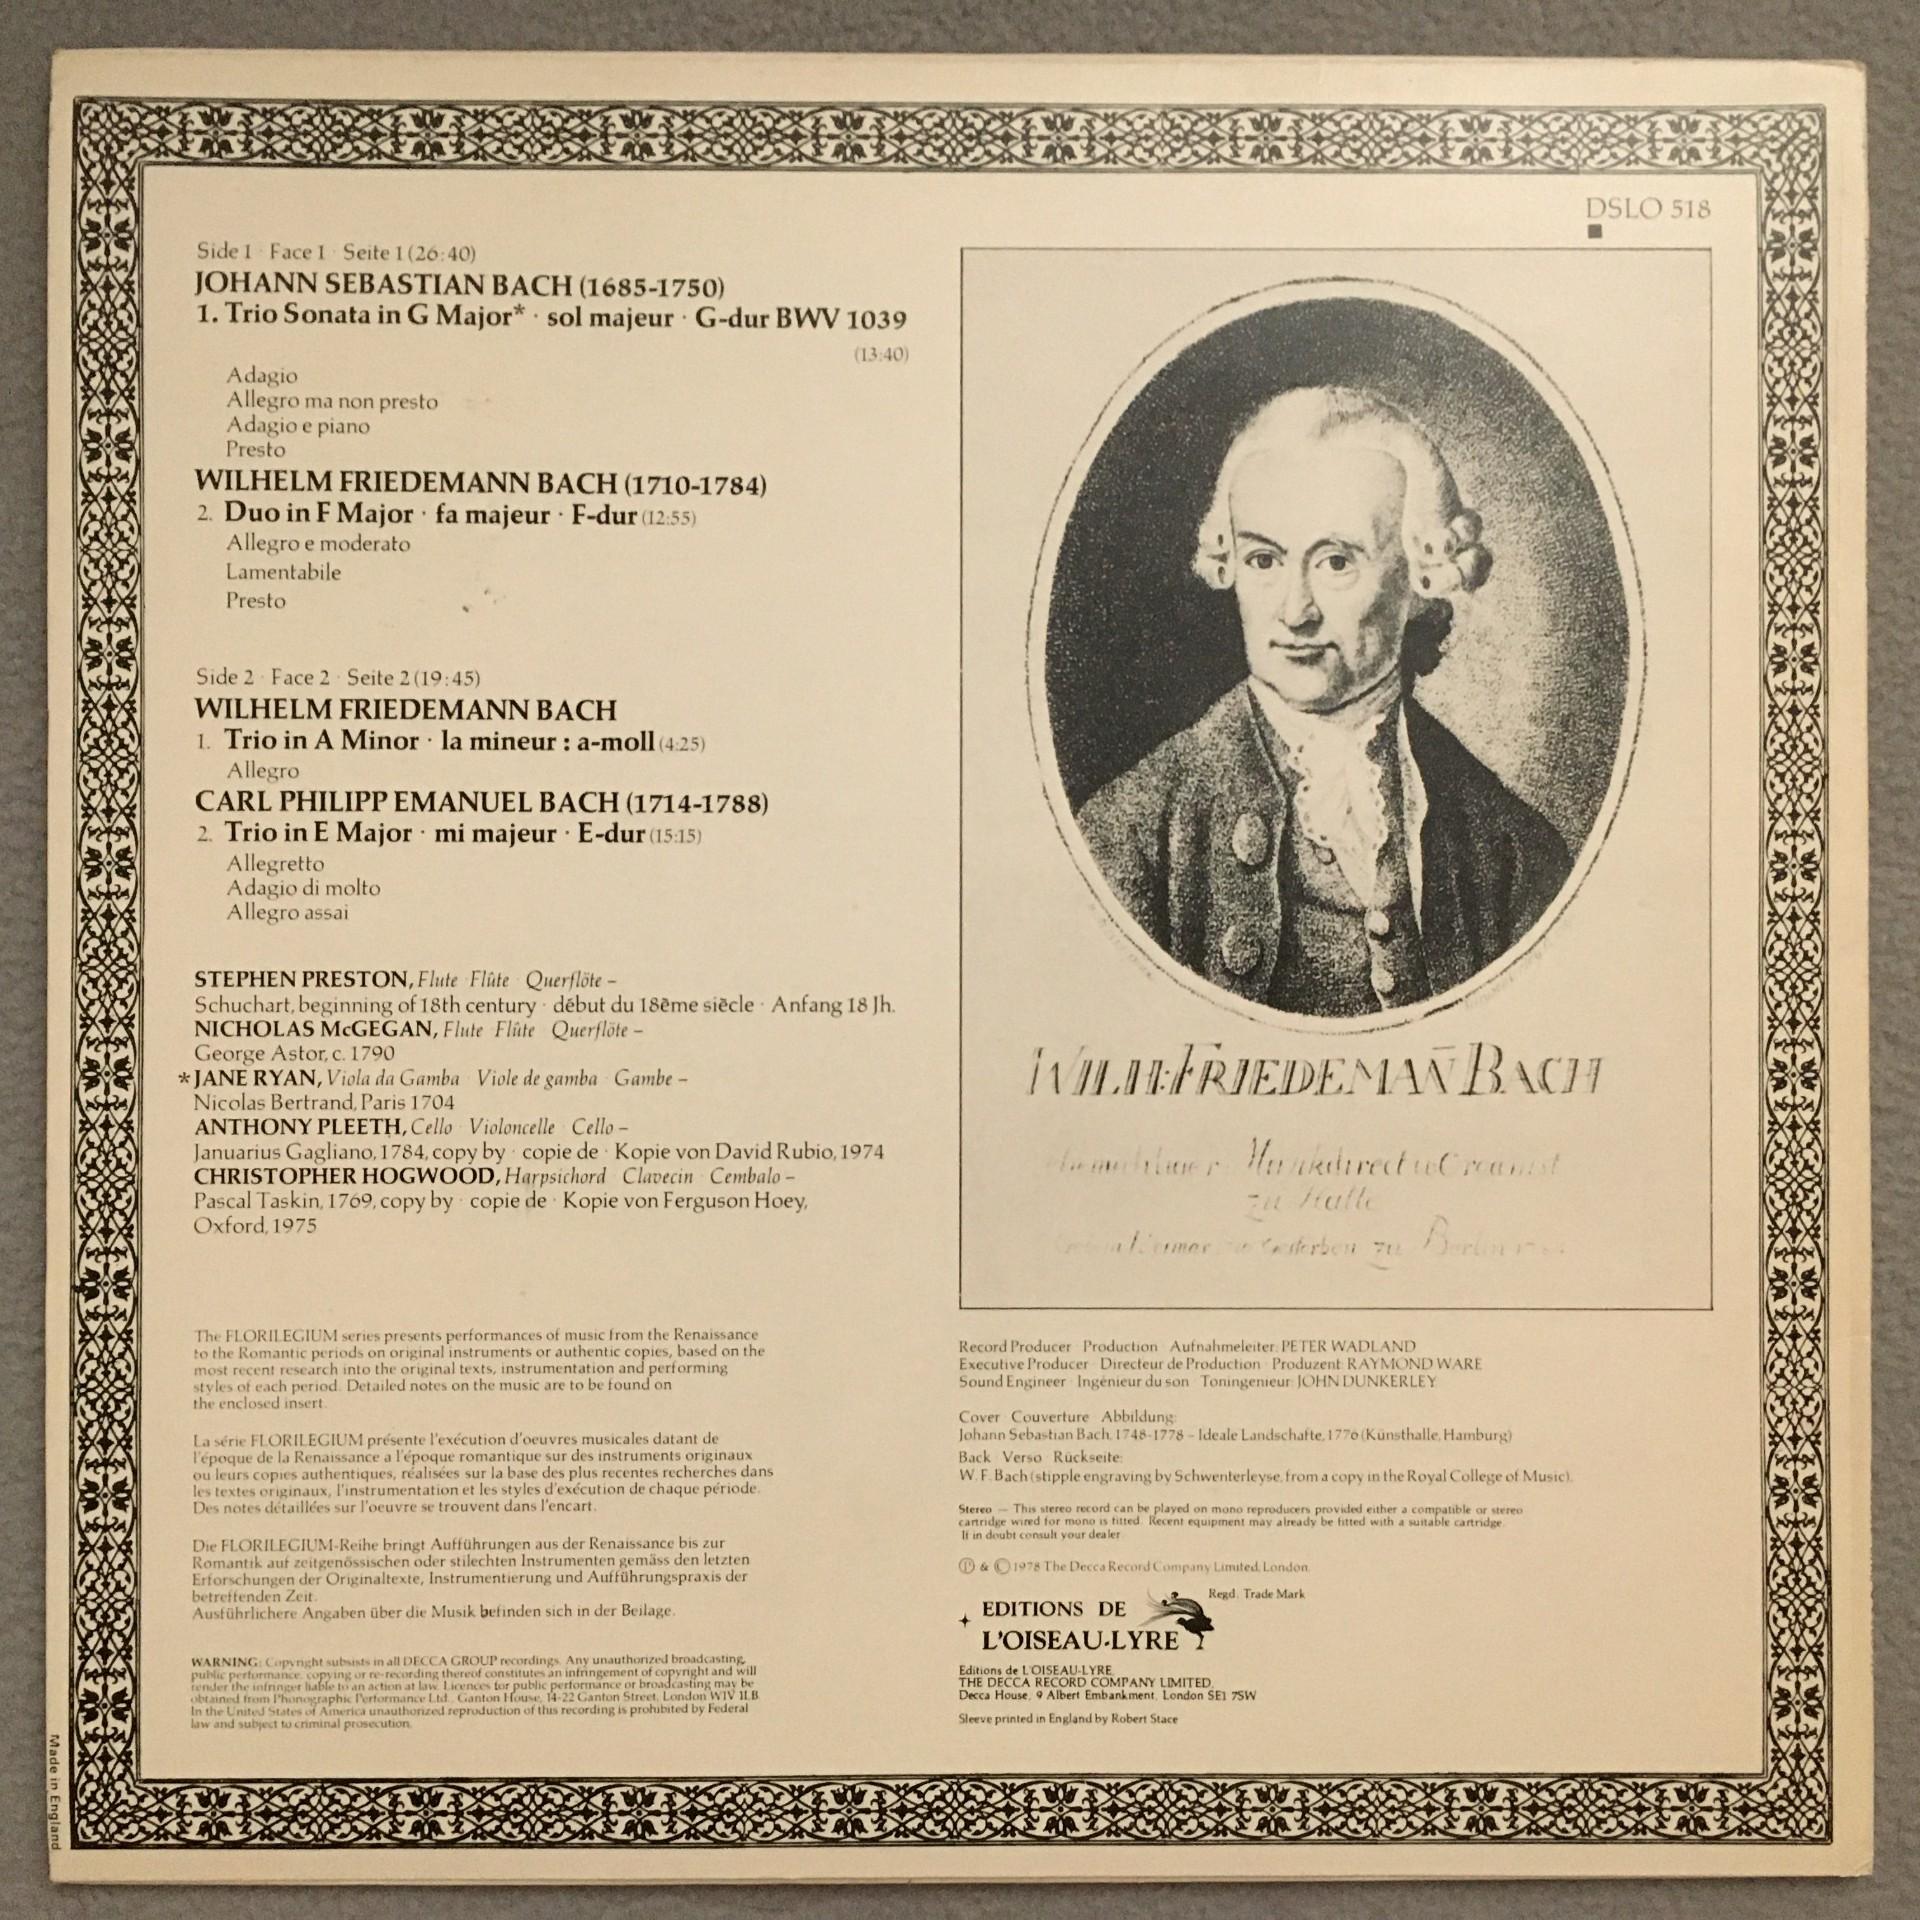 DSLO 518
Side 1 · Face 1 · Seite 1 (26:40)
JOHANN SEBASTIAN BACH (1685-1750)
1. Trio Sonata in G Major* · sol majeur · G-dur BWV 1039
(13:40)
Adagio
Allegro ma non presto
Adagio e piano
Presto
WILHELM FRIEDEMANN BACH (1710-1784)
2. Duo in F Major · fa majeur · F-dur (12:55)
Allegro e moderato
Lamentabile
Presto
Side 2 · Face 2 · Seite 2 (19:45)
WILHELM FRIEDEMANN BACH
1. Trio in A Minor · la mineur : a-moll (4:25)
Allegro
CARL PHILIPP EMANUEL BACH (1714-1788)
2. Trio in E Major · mi majeur · E-dur (15:15)
Allegretto
Adagio di molto
Allegro assai
STEPHEN PRESTON, Flute · Flûte · Querflöte –
Schuchart, beginning of 18th century · début du 18ème siècle · Anfang 18 Jh.
NICHOLAS McGEGAN, Flute · Flûte · Querflöte –
George Astor, c. 1790
*JANE RYAN, Viola da Gamba · Viole de gamba · Gambe –
Nicolas Bertrand, Paris 1704
ANTHONY PLEETH, Cello · Violoncelle · Cello –
Januarius Gagliano, 1784, copy by · copie de · Kopie von David Rubio, 1974
CHRISTOPHER HOGWOOD, Harpsichord · Clavecin · Cembalo –
Pascal Taskin, 1769, copy by · copie de · Kopie von Ferguson Hoey,
Oxford, 1975
The FLORILEGIUM series presents performances of music from the Renaissance
to the Romantic periods on original instruments or authentic copies, based on the
most recent research into the original texts, instrumentation and performing
styles of each period. Detailed notes on the music are to be found on
the enclosed insert.
La série FLORILEGIUM présente l'exécution d'oeuvres musicales datant de
l'époque de la Renaissance a l'époque romantique sur des instruments originaux
ou leurs copies authentiques, réalisées sur la base des plus recentes recherches dans
les textes originaux, l'instrumentation et les styles d'exécution de chaque période.
Des notes détaillées sur l'oeuvre se trouvent dans l'encart.
Die FLORILEGIUM-Reihe bringt Aufführungen aus der Renaissance bis zur
Romantik auf zeitgenössischen oder stilechten Instrumenten gemäss den letzten
Erforschungen der Originaltexte, Instrumentierung und Aufführungspraxis der
betreffenden Zeit.
Ausführlichere Angaben über die Musik befinden sich in der Beilage.
WARNING: Copyright subsists in all DECCA GROUP recordings. Any unauthorized broadcasting,
public performance, copying or re-recording thereof constitutes an infringement of copyright and will
render the infringer liable to an action at law. Licences for public performance or broadcasting may be
obtained from Phonographic Performance Ltd., Ganton House, 14-22 Ganton Street, London W1V 1LB.
In the United States of America unauthorized reproduction of this recording is prohibited by Federal
law and subject to criminal prosecution.
Made in England
WILH: FRIEDEMAÑ BACH
zu Halle
gestorben zu Berlin
Record Producer · Production · Aufnahmeleiter: PETER WADLAND
Executive Producer · Directeur de Production · Produzent: RAYMOND WARE
Sound Engineer · Ingénieur du son · Toningenieur: JOHN DUNKERLEY
Cover · Couverture · Abbildung:
Johann Sebastian Bach, 1748-1778 – Ideale Landschafte, 1776 (Künsthalle, Hamburg)
Back · Verso · Rückseite:
W. F. Bach (stipple engraving by Schwenterleyse, from a copy in the Royal College of Music).
Stereo — This stereo record can be played on mono reproducers provided either a compatible or stereo
cartridge wired for mono is fitted. Recent equipment may already be fitted with a suitable cartridge.
If in doubt consult your dealer.
Ⓟ & © 1978 The Decca Record Company Limited, London.
Regd. Trade Mark
EDITIONS DE
L'OISEAU-LYRE
Editions de L'OISEAU-LYRE,
THE DECCA RECORD COMPANY LIMITED,
Decca House, 9 Albert Embankment, London SE1 7SW
Sleeve printed in England by Robert Stace